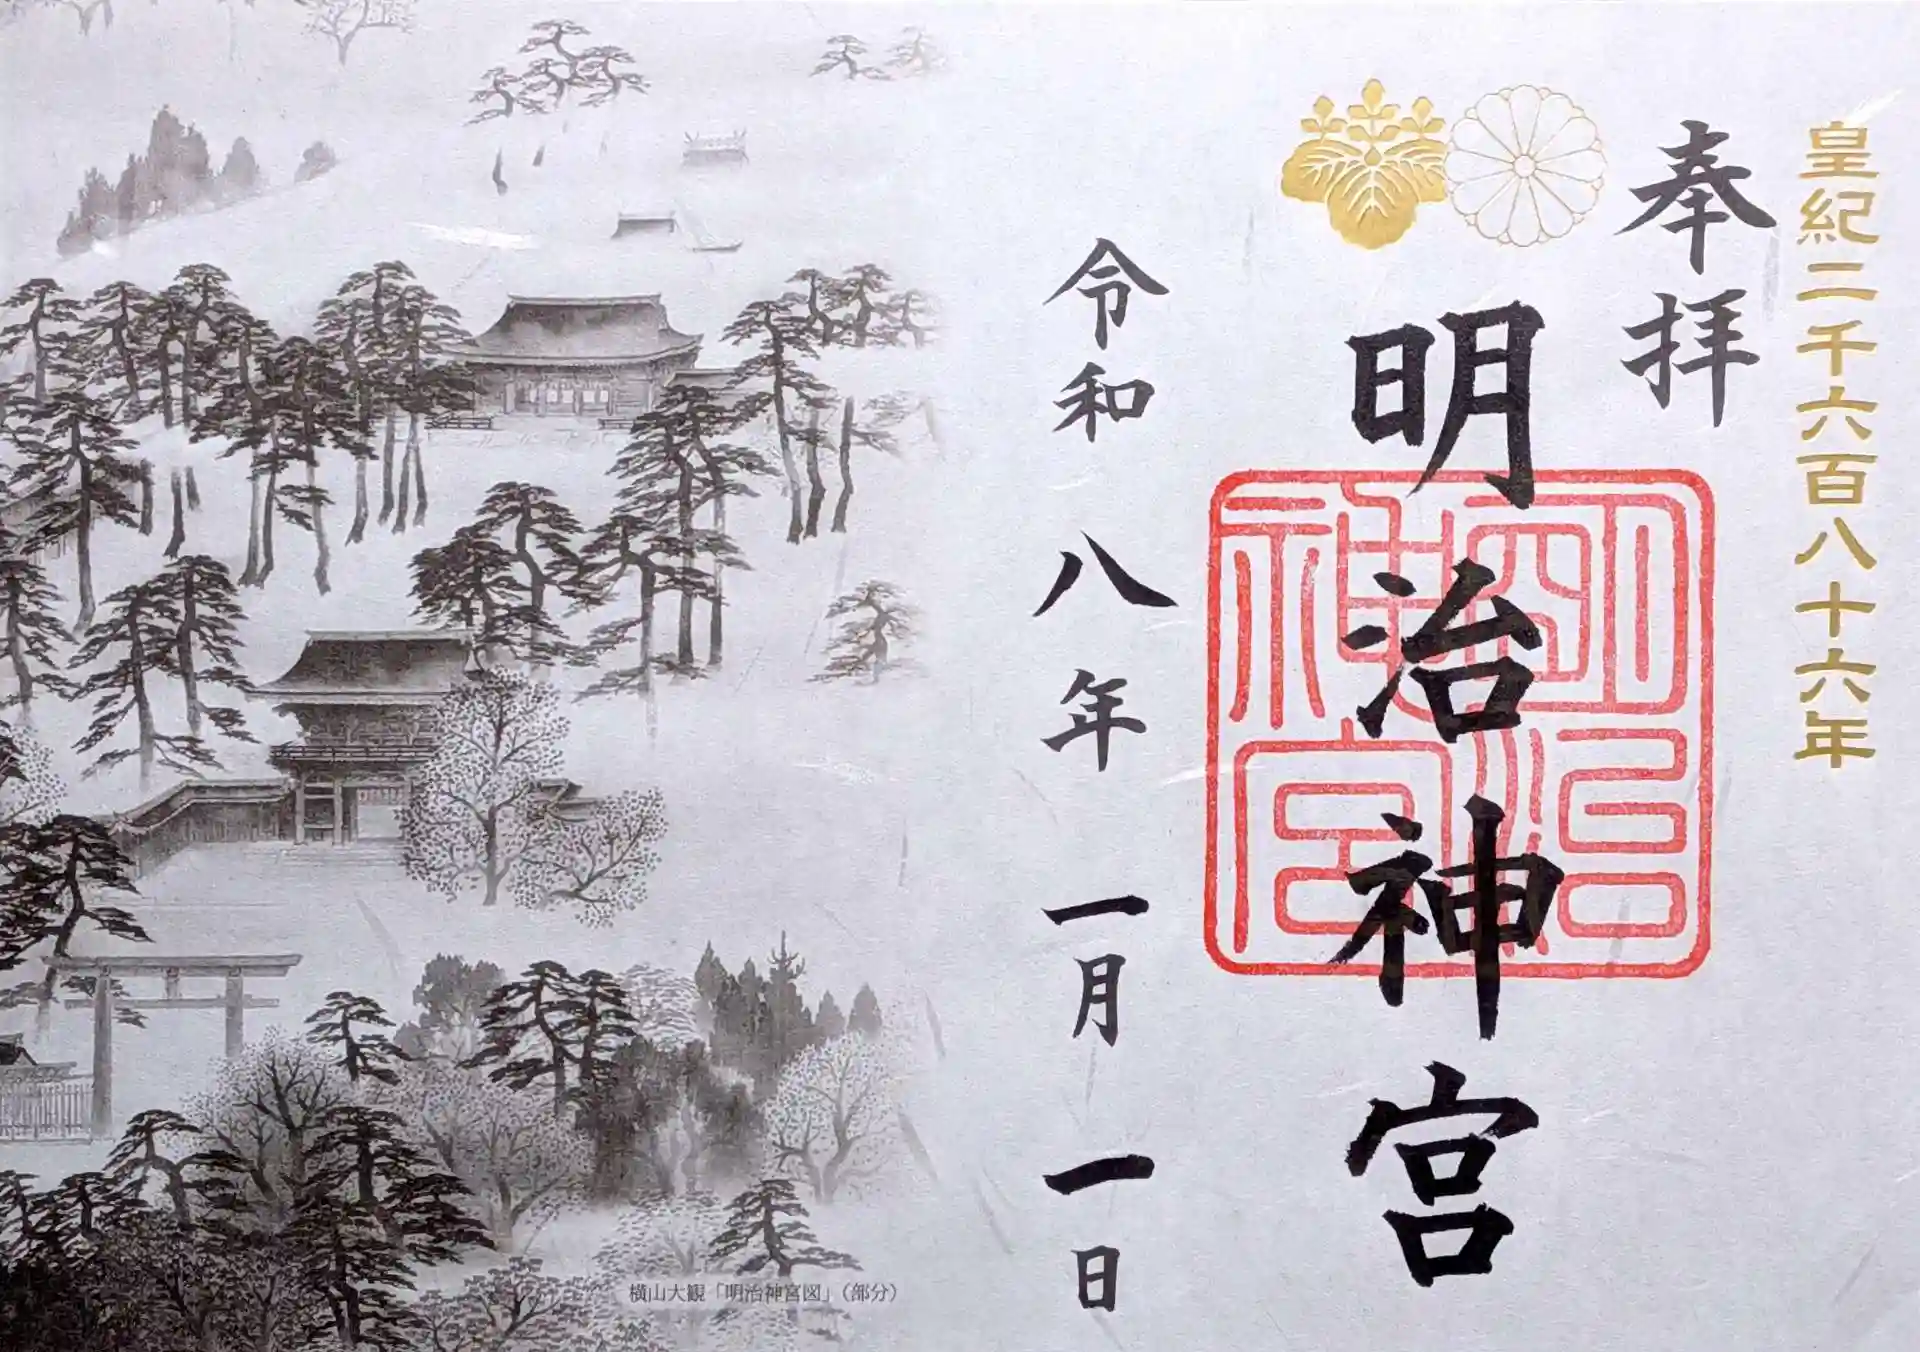 皇紀二千六百八十六年
奉拝
明治神宮
明治神宮
令和八年一月一日
横山大観「明治神宮図」（部分）